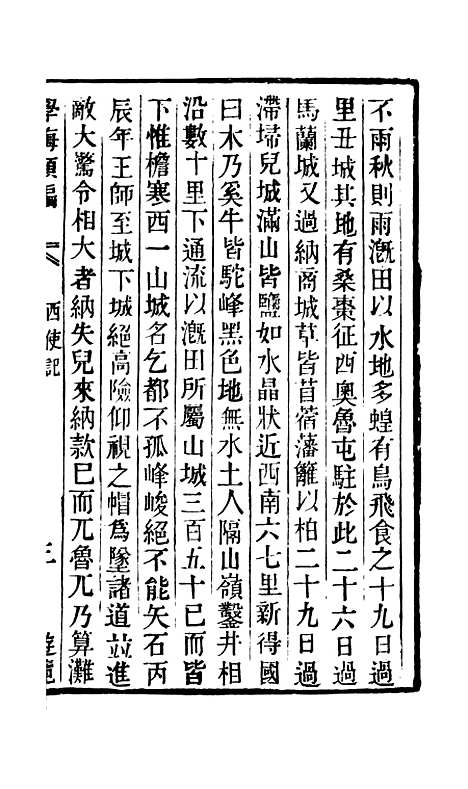 不雨秋則雨漑田以水地多蝗有鳥飛食之十九日過
里丑城其地有桑棗征西奧魯屯駐於此二十六日過
馬蘭城又過納商城草皆苜蓿藩籬以柏二十九日過
滯埽兒城滿山皆鹽如水晶狀近西南六七里新得國
曰木乃奚牛皆駝峰黑色地無水土人隔山嶺鑿井相
沿數十里下通流以漑田所屬山城三百五十已而皆
下惟檐寒西一山城名乞都不孤峰峻絕不能矢石丙
辰年王師至城下城絕高險仰視之帽爲墜諸道並進
敵大驚令相大者納失兒來納款已而兀魯兀乃算灘
學海類編
西使記
三
遊覽